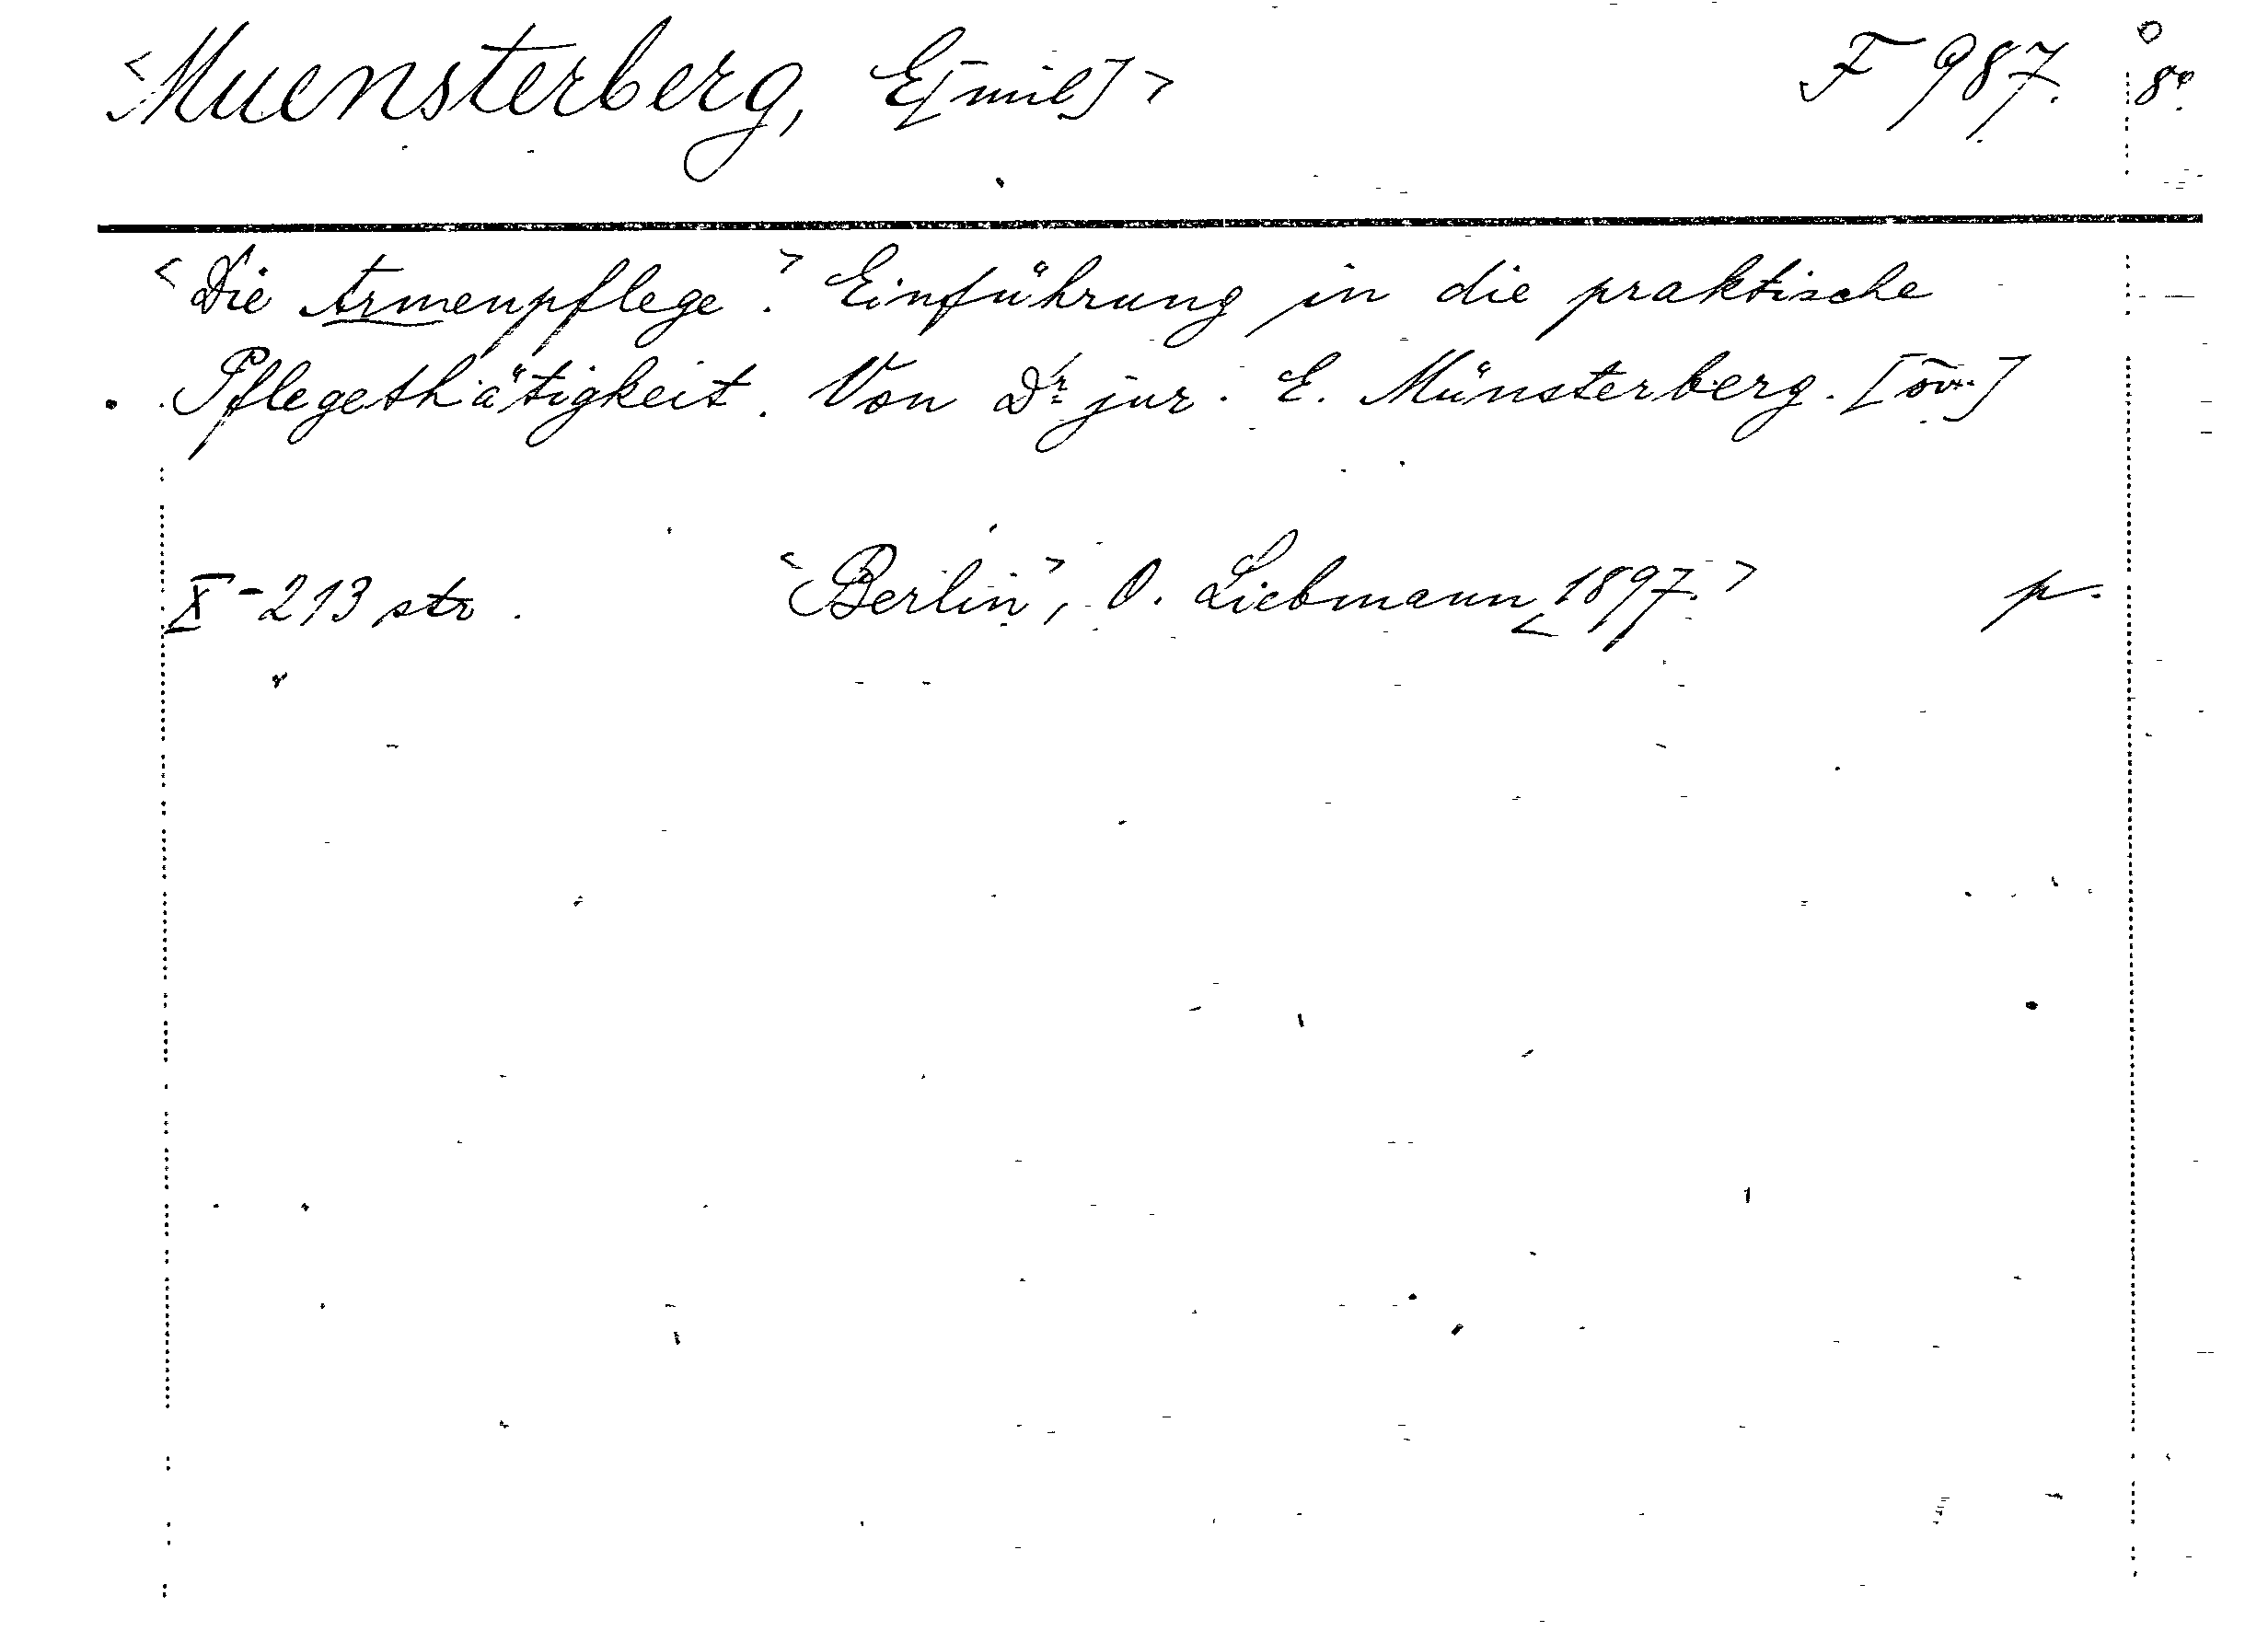 <Muensterberg, E[mil]> F 987. 8º.
<Die Armenpflege>. Einführung in die praktische
Pflegethätigkeit. Von Dr jur. E. Münsterberg.
X-213 str. <Berlin>, O. Liebmann <1897.> p.